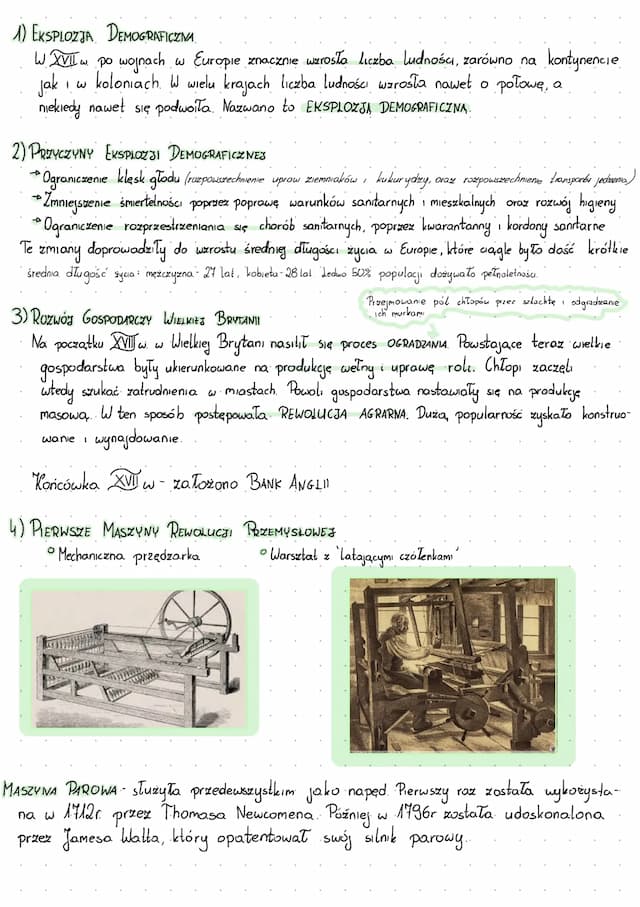 1) EKSPLOZJA DEMOGRAFICZNA
W XVII w. po wojnach w Europie znacznie wzrosła liczba ludności, zarówno na kontynencie
jak i w koloniach. W wielu krajach liczba ludności wzrosła nawet o połowę, a
niekiedy nawet się podwoiła. Nazwano to EKSPLOZJĄ DEMOGRAFICZNĄ.
2) PRZYCZYNY EKSPLOZJI DEMOGRAFICZNEJ
→ Ograniczenie klęsk głodu (rozpowszechnienie upraw ziemniaków i kukurydzy, oraz rozpowszechnienie transportu jedzenia)
→ Zmniejszenie śmiertelności poprzez poprawę warunków sanitarnych i mieszkalnych oraz rozwój higieny
→ Ograniczenie rozprzestrzeniania się chorób sanitarnych, poprzez kwarantanny i kordony sanitarne
Te zmiany doprowadziły do wzrostu średniej długości życia w Europie, które ciągle było dość krótkie
średnia długość życia: mężczyzna - 27 lat, kobieta - 28 lat Ledwo 50% populacji dożywało pełnoletności.
Przejmowanie pól chłopów przez szlachtę i odgradzanie
ich murkami
3) ROZWÓJ GOSPODARCZY WIELKIEJ BRYTANII
Na początku XVII w. w Wielkiej Brytani nasilił się proces OGRADZANIA. Powstające teraz wielkie
gospodarstwa były ukierunkowane na produkcję wełny i uprawę roli. Chłopi zaczęli
wtedy szukać zatrudnienia w miastach. Powoli gospodarstwa nastawiały się na produkcję
masową. W ten sposób postępowała REWOLUCJA AGRARNA. Dużą popularność zyskało konstruo-
wanie i wynajdowanie.
Końcówka XVII w - założono BANK ANGLII
4) PIERWSZE MASZYNY REWOLUCJI PRZEMYSŁOWEJ
° Mechaniczna przędzarka ° Warsztat z 'latającymi czółenkami'
MASZYNA PAROWA - służyła przedewszystkim jako napęd. Pierwszy raz została wykożysta-
na w 1712r. przez Thomasa Newcomena. Później w 1796r została udoskonalona
przez Jamesa Watta, który opatentował swój silnik parowy.